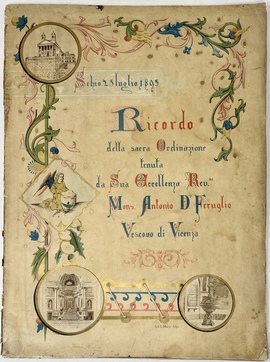 Schio 25 luglio 1895
Ricordo
della sacra Ordinazione
tenuta
da Sua Eccellenza Rev.ma
Mons. Antonio D.r Feruglio
Vescovo di Vicenza